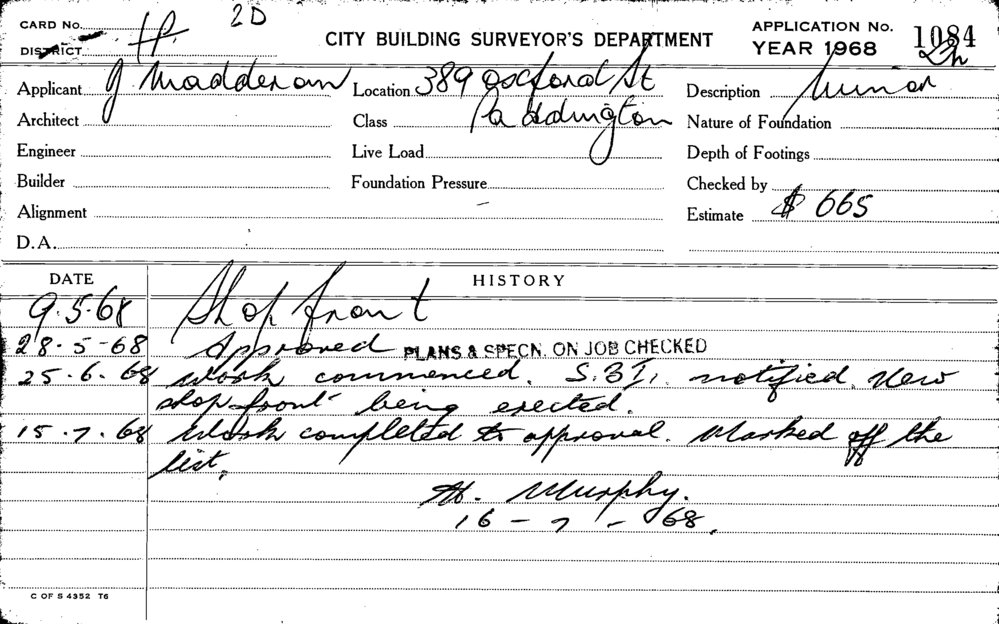 CARD No. H. 2D CITY BUILDING SURVEYOR'S DEPARTMENT APPLICATION No. 1084
DISTRICT YEAR 1968
Applicant J Madderom Location 389 Oxford St Description Minor
Architect Class Paddington Nature of Foundation
Engineer Live Load Depth of Footings
Builder Foundation Pressure Checked by
Alignment Estimate $ 665
D.A.
DATE HISTORY
9.5.68 Shop front
28.5-68 Approved PLANS & SPECN. ON JOB CHECKED
25.6.68 Work commenced. S.B.I. notified. New
shop front being erected.
15.7.68 Work completed to approval. Marked off the
list.
H. Murphy.
16-7-68.
C OF S 4352 T6